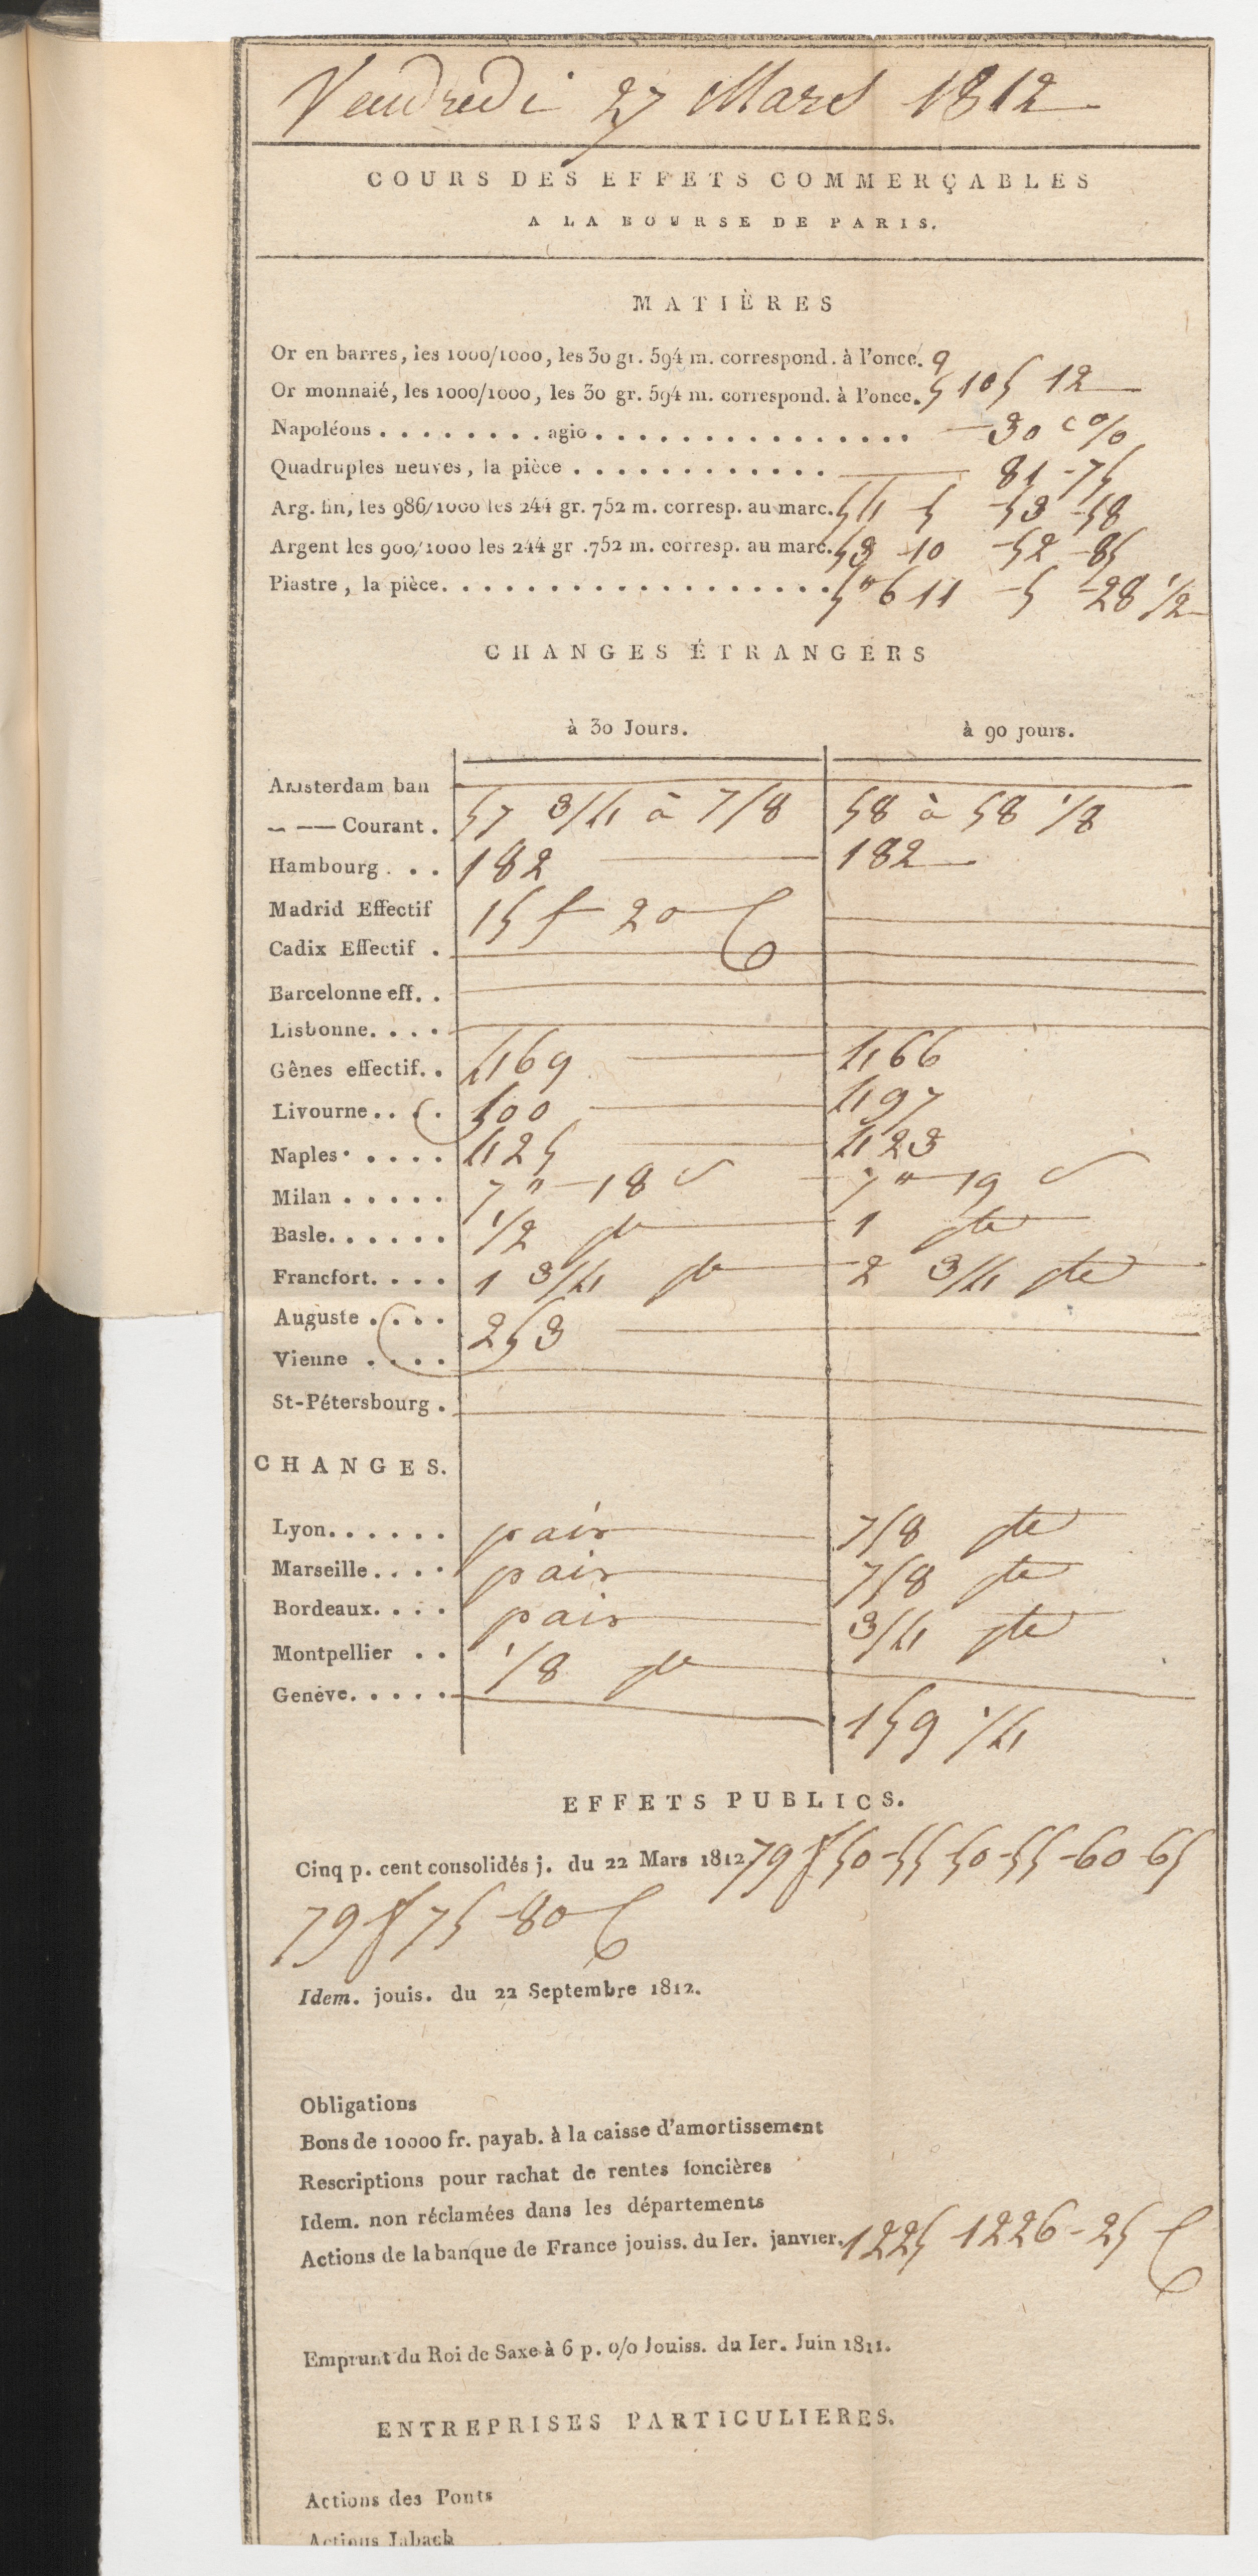 Vendredi 27 Mars 1812
COURS DES EFFETS COMMERÇABLES
A LA BOURSE DE PARIS.
MATIÈRES
Or en barres, les 1000/1000, les 30 gr. 594 m. correspond. à l'once. 9
Or monnaié, les 1000/1000, les 30 gr. 594 m. correspond. à l'once. 5 105 12
Napoléons ........ agio ................ 30 c %
Quadruples neuves, la pièce ............. 81 - 75
Arg. fin, les 986/1000 les 244 gr. 752 m. corresp. au marc. 54 5 - 53 - 58
Argent les 900/1000 les 244 gr .752 m. corresp. au marc. 53 - 10 - 52 - 85
Piastre, la pièce. .................. 5" 6 11 - 5 - 28 1/2
CHANGES ÉTRANGERS
à 30 Jours. à 90 jours.
Amsterdam ban
— — Courant . 57 3/4 à 7/8 58 à 58 1/8
Hambourg . . . 182 182
Madrid Effectif 15 f 20 C
Cadix Effectif .
Barcelonne eff. .
Lisbonne. . . .
Gênes effectif. . 469 466
Livourne. . . . 500 497
Naples . . . . 425 423
Milan . . . . . 7" - 18 s 7" - 19 s
Basle. . . . . . 1/2 pte 1 pte
Francfort. . . . 1 3/4 pte 2 3/4 pte
Auguste . . . . 253
Vienne . . . .
St-Pétersbourg .
CHANGES.
Lyon. . . . . . pair 7/8 pte
Marseille. . . . pair 7/8 pte
Bordeaux. . . . pair 3/4 pte
Montpellier . . 1/8 pte
Genève. . . . . 159 1/4
EFFETS PUBLICS.
Cinq p. cent consolidés j. du 22 Mars 1812 79 f 50 - 55 50 - 55 - 60 65
79 f 75 - 80 C
Idem. jouis. du 22 Septembre 1812.
Obligations
Bons de 10000 fr. payab. à la caisse d'amortissement
Rescriptions pour rachat de rentes foncières
Idem. non réclamées dans les départements
Actions de la banque de France jouiss. du Ier. janvier. 1225 1226 - 25 C
Emprunt du Roi de Saxe à 6 p. o/o Jouiss. du Ier. Juin 1811.
ENTREPRISES PARTICULIERES.
Actions des Ponts
Actions Jabach